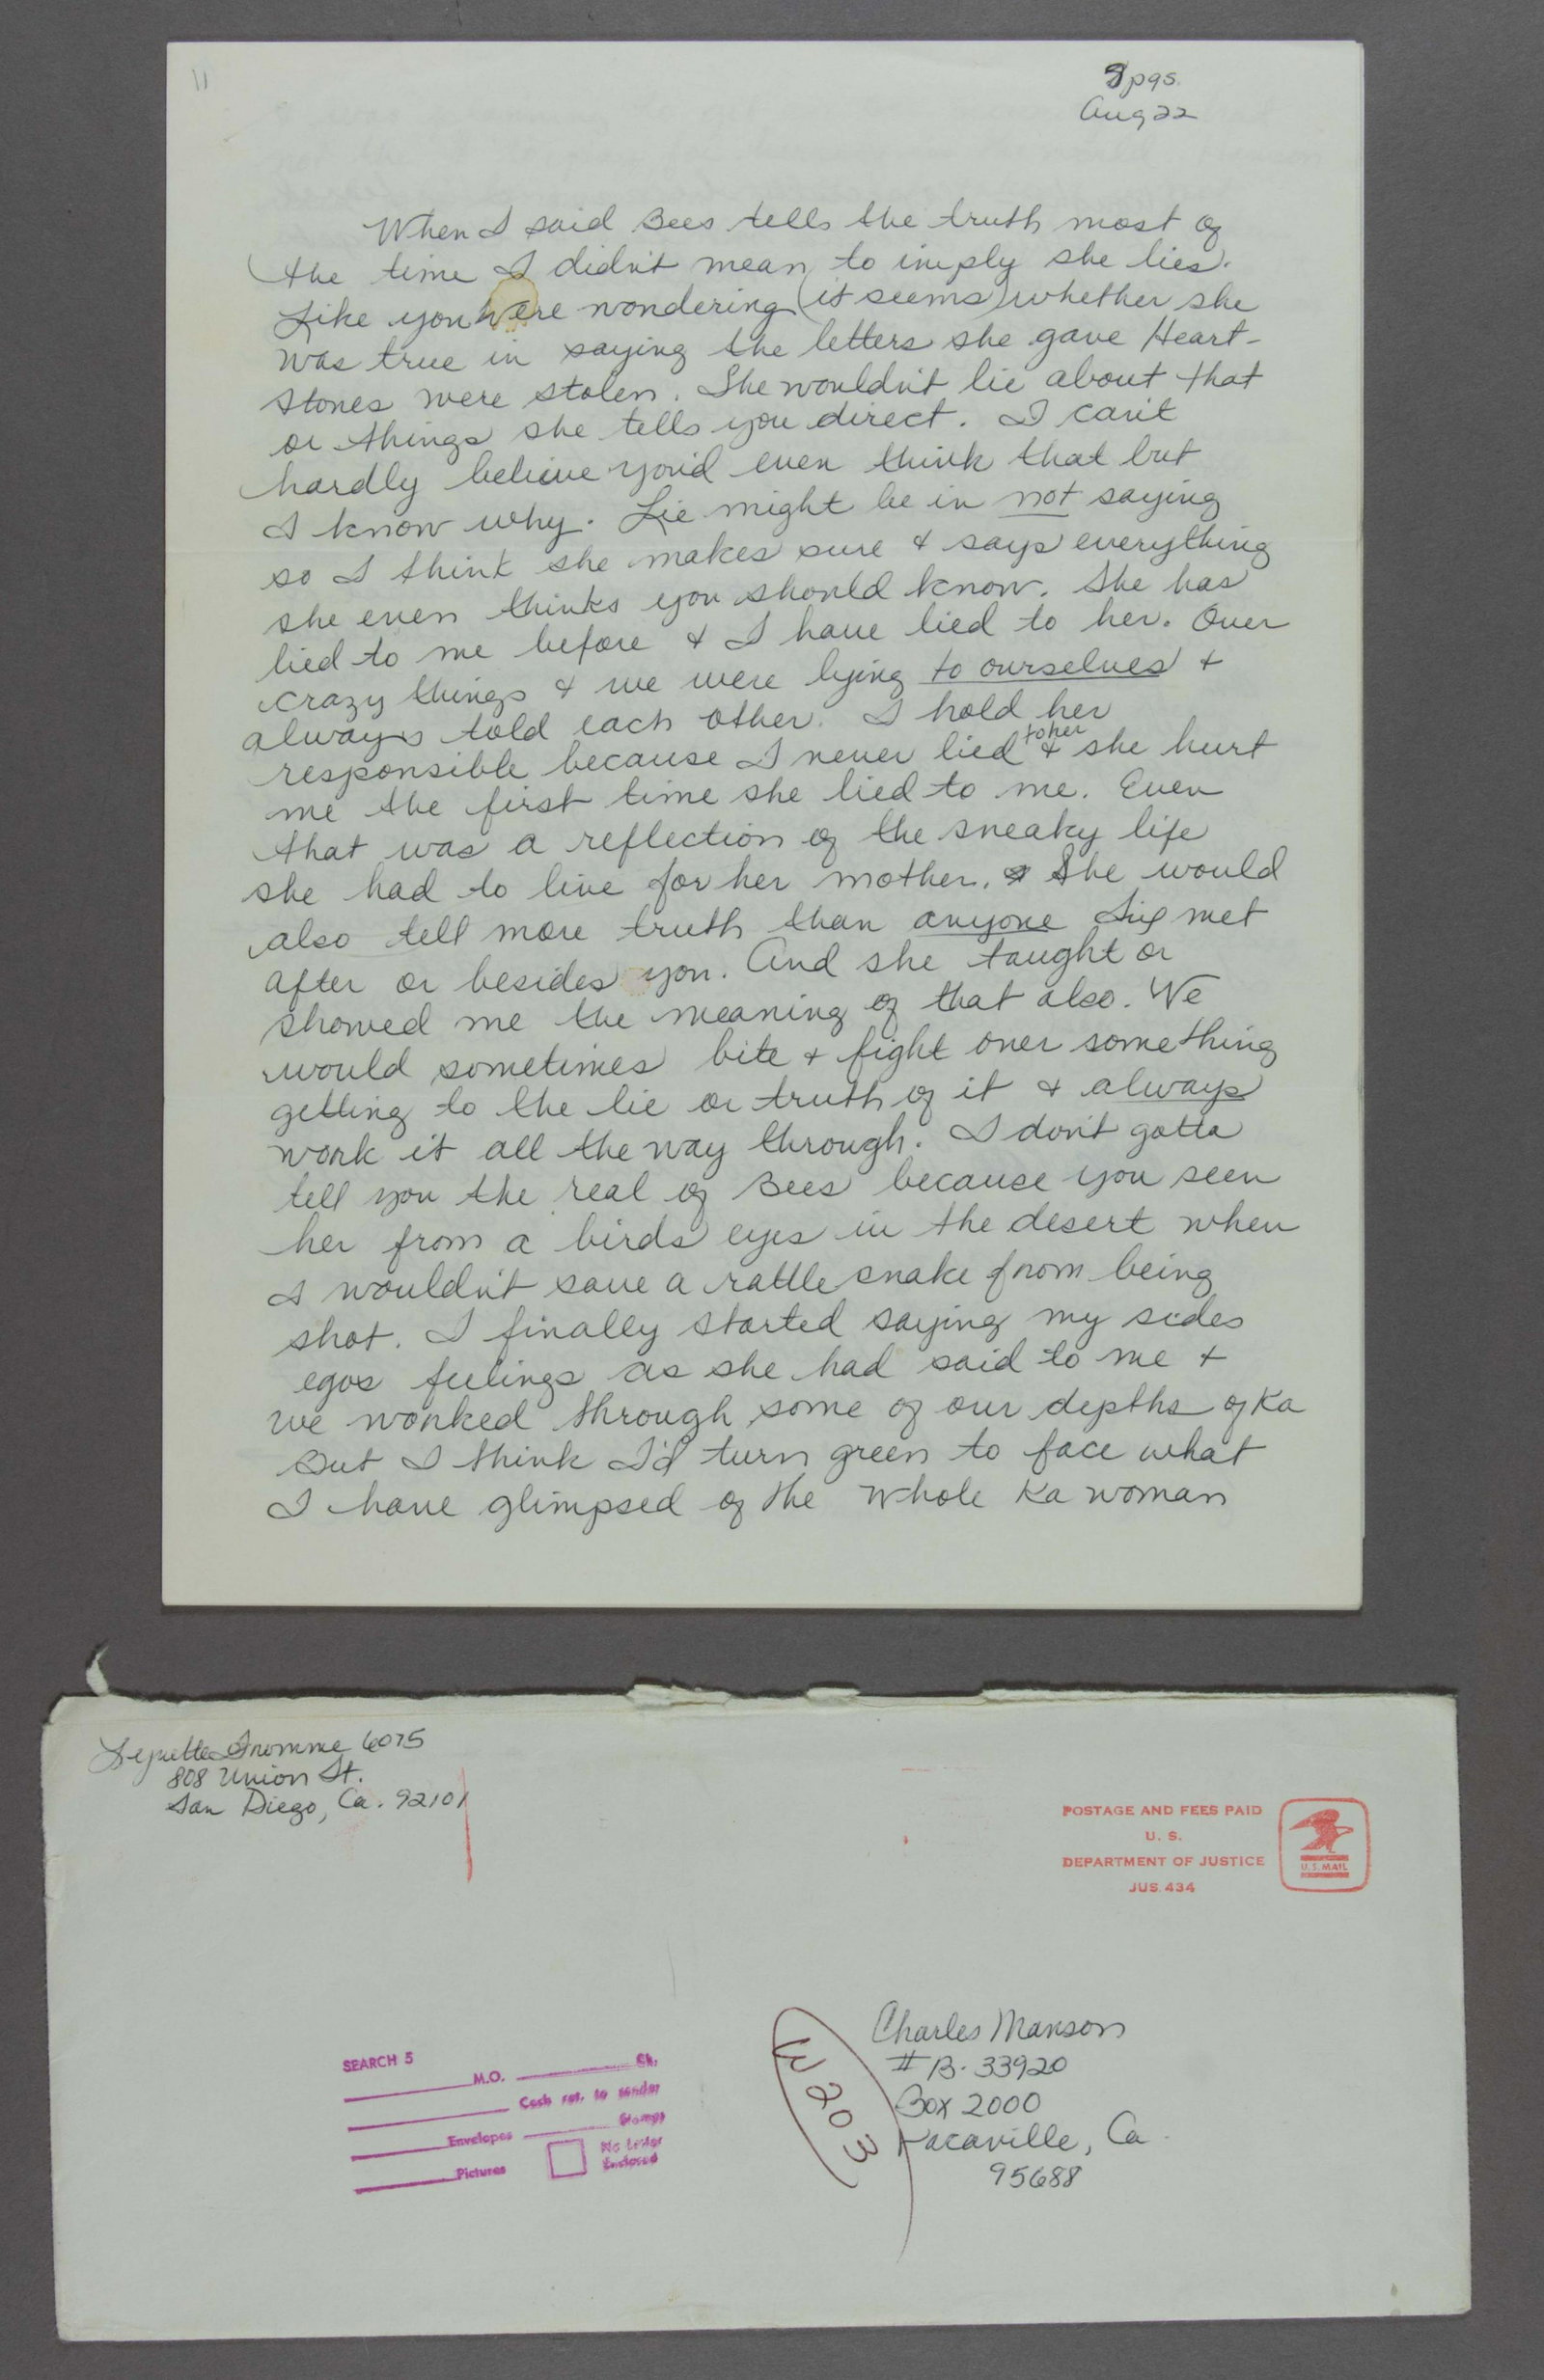 11
8pgs.
Aug 22
When I said Bees tells the truth most of
the time I didn't mean to imply she lies.
Like you were wondering (it seems) whether she
was true in saying the letters she gave Heart-
stones were stolen. She wouldn't lie about that
or things she tells you direct. I can't
hardly believe you'd even think that but
I know why. Lie might be in not saying
so I think she makes sure & says everything
she even thinks you should know. She has
lied to me before & I have lied to her. Over
crazy things & we were lying to ourselves &
always told each other. I hold her
responsible because I never lied to her & she hurt
me the first time she lied to me. Even
that was a reflection of the sneaky life
she had to live for her mother. She would
also tell more truth than anyone I've met
after or besides you. And she taught or
showed me the meaning of that also. We
would sometimes bite & fight over something
getting to the lie or truth of it & always
work it all the way through. I don't gotta
tell you the real of Bees because you seen
her from a birds eyes in the desert when
I wouldn't save a rattle snake from being
shot. I finally started saying my sides
egos feelings as she had said to me &
we worked through some of our depths of Ka
But I think I'd turn green to face what
I have glimpsed of the whole Ka woman
Lynette Fromme 6075
808 Union St.
San Diego, Ca. 92101
POSTAGE AND FEES PAID
U. S.
DEPARTMENT OF JUSTICE
JUS 434
U.S. MAIL
SEARCH 5
M.O. Ck.
Cash ret. to sender
Envelopes Stamps
Pictures No Letter
Enclosed
W203
Charles Manson
# B-33920
Box 2000
Vacaville, Ca.
95688